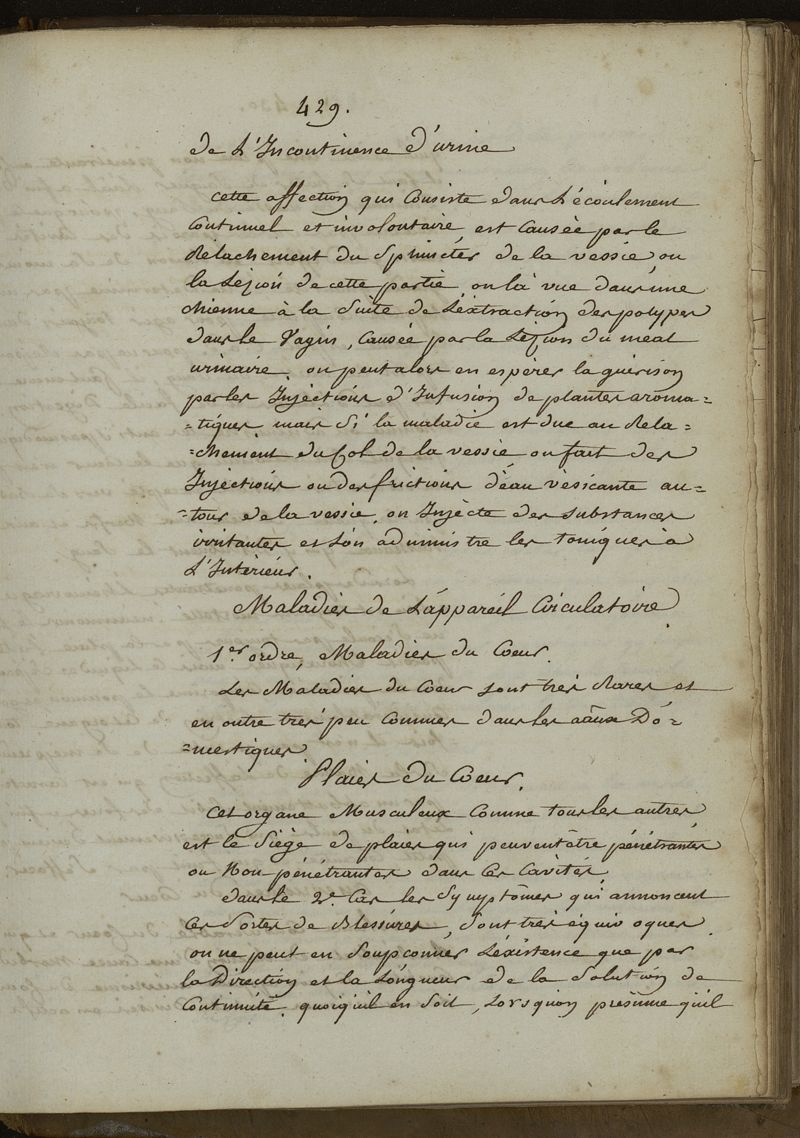 429.
de L'Incontinence d'urine
cette affection qui Consiste dans L'écoulement
Continuel et involontaire, est Causée par le
Relachement du Sphincter de la vessie, ou
la Lézion de cette partie, on la vue dans une
chienne à la Suite de L'extraction des polypes
dans le Vagin, Causée par la Lézion du meat
urinaire. on peut alors en espérer la guérison
par les Injections d'Infusion de plantes aroma=
=tiques mais Si la maladie est due au Rela=
=chement du Col de la vessie on fait des
Injections ou des frictions d'eau vésicante au=
=tour de la vessie, on Injècte des substances
irritantes et L'on administre les toniques à
L'Interieur.
Maladies de L'appareil Circulatoire
1.er ordre, Maladies du Coeur.
Les Maladies du Coeur sont très Rares et
en outre très peu Connues dans les aâux Do=
=mestiques
Plaies du Coeur.
Cet organe Musculeux Comme tous les autres
est le Siège de plaies qui peuvent être pénétrantes
ou Non pénétrantes dans Ces Cavités,
dans le 2.e Cas les Symptômes qui annoncent
Ces Sortes de Blessures, Sont très équivoques
on ne peut en Soupconner L'existence que par
la Direction et la Longueur de la Solution de
Continuité. quoiquil en Soit, Lorsquon présume quil